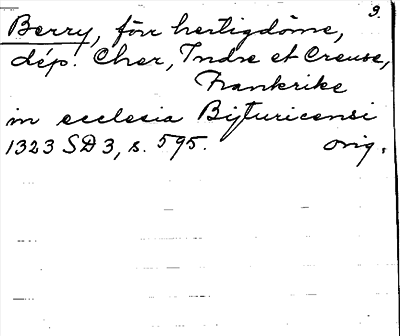 9.
Berry, förr hertigdöme,
dép. Cher, Indre et Creuse,
Frankrike
in ecclesia Bijturicensi
1323 SD 3, s. 595. orig.